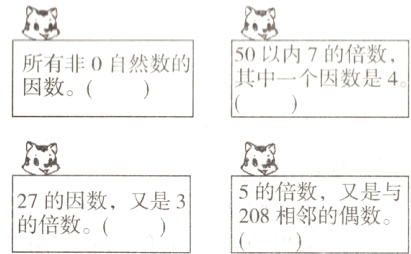 所有非 0 自然数的
因数。(    )
50 以内 7 的倍数，
其中一个因数是 4。
(    )
27 的因数，又是 3
的倍数。(    )
5 的倍数，又是与
208 相邻的偶数。
(    )